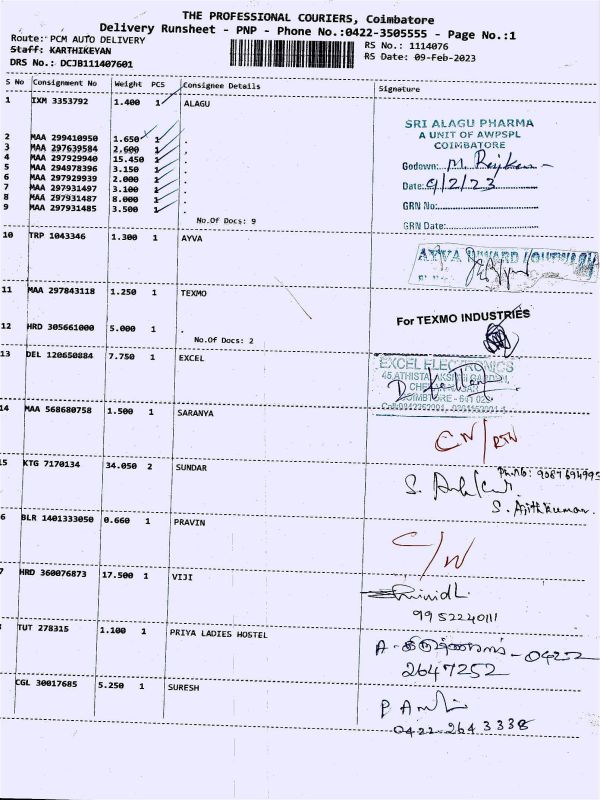 THE PROFESSIONAL COURIERS, Coimbatore
Delivery Runsheet - PNP - Phone No.:0422-3505555 - Page No.:1
Route: PCM AUTO DELIVERY
RS No.: 1114076
Staff: KARTHIKEYAN
RS Date: 09-Feb-2023
DRS No.: DCJB111407601
S No Consignment No Weight PCS Consignee Details Signature
1 IXM 3353792 1.400 1 ALAGU
SRI ALAGU PHARMA
A UNIT OF AWPSPL
COIMBATORE
2 MAA 299410950 1.650 1 .
3 MAA 297639584 2.600 1 .
4 MAA 297929940 15.450 1 .
5 MAA 294978396 3.150 1 .
6 MAA 297929939 2.000 1 .
7 MAA 297931497 3.100 1 .
8 MAA 297931487 8.000 1 .
9 MAA 297931485 3.500 1 .
Godown: M.
Date: 9/2/23
GRN No:
GRN Date:
No.Of Docs: 9
10 TRP 1043346 1.300 1 AYVA
AYVA INWARD / OUTWARD
11 MAA 297843118 1.250 1 TEXMO
For TEXMO INDUSTRIES
12 HRD 305661000 5.000 1 .
No.Of Docs: 2
13 DEL 120650884 7.750 1 EXCEL
EXCEL ELECTRONICS
COIMBTORE - 641 02
14 MAA 568680758 1.500 1 SARANYA
CN/RTN
15 KTG 7170134 34.050 2 SUNDAR
Ph.No: 9087694993
S. Ajithkumar
6 BLR 1401333050 0.660 1 PRAVIN
C/N
7 HRD 360076873 17.500 1 VIJI
9952240111
TUT 278315 1.100 1 PRIYA LADIES HOSTEL
A - - 04252
2647252
CGL 30017685 5.250 1 SURESH
0422-2643338